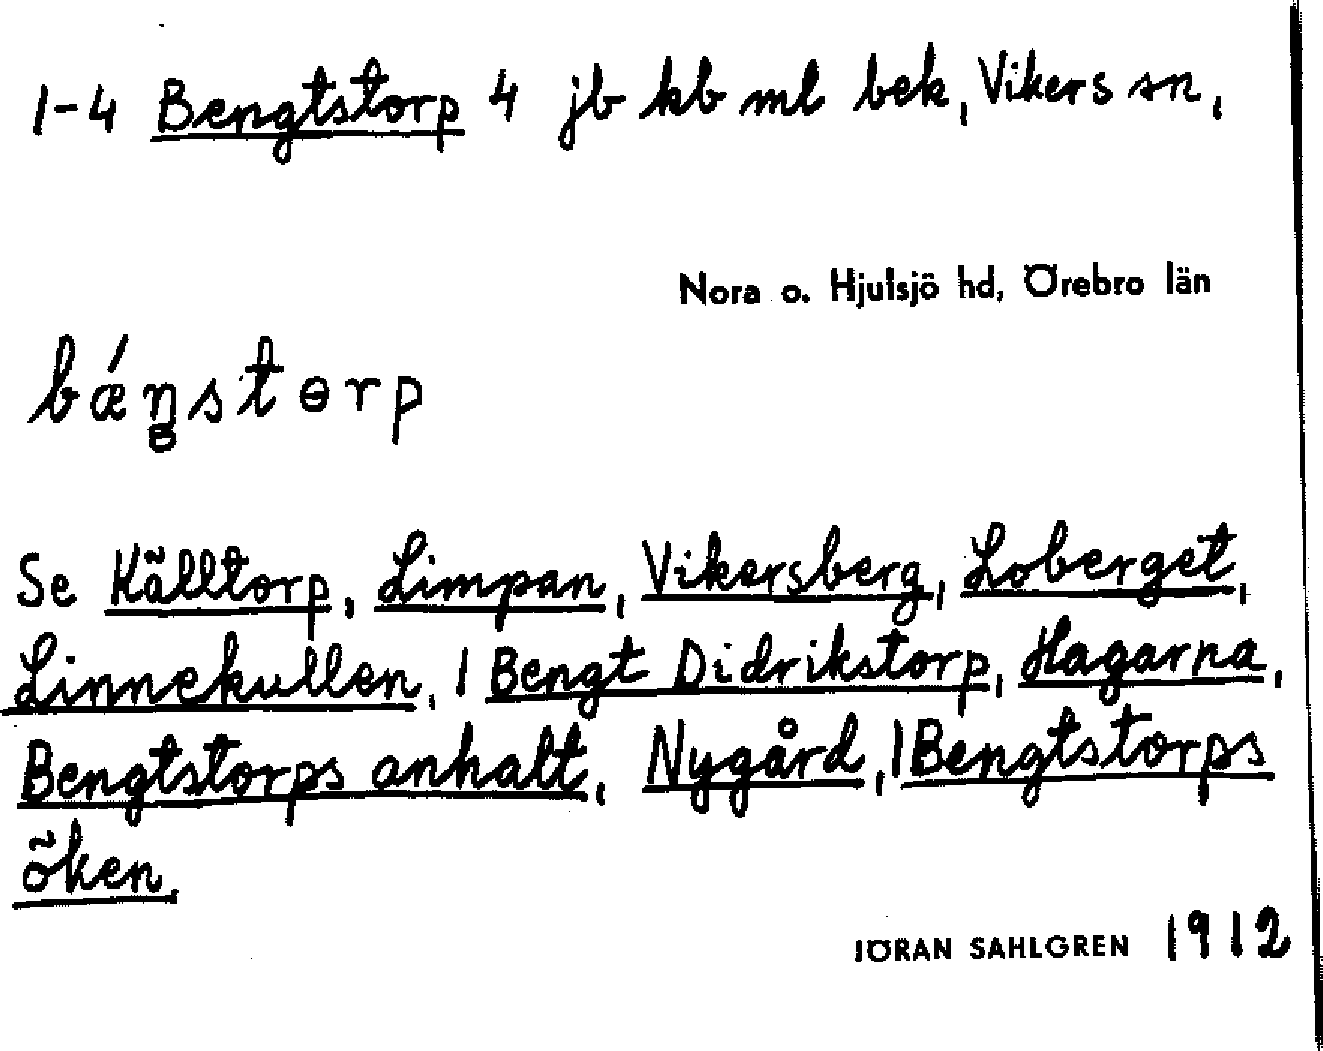 1-4 Bengtstorp 4 jb kb ml bek, Vikers sn,
Nora o. Hjulsjö hd, Örebro län
bǽŋstɵrp
Se Källtorp, Limpan, Vikersberg, Loberget,
Linnekullen, 1 Bengt Didrikstorp, Hagarna,
Bengtstorps anhalt, Nygård, 1 Bengtstorps
öken.
JÖRAN SAHLGREN 1912